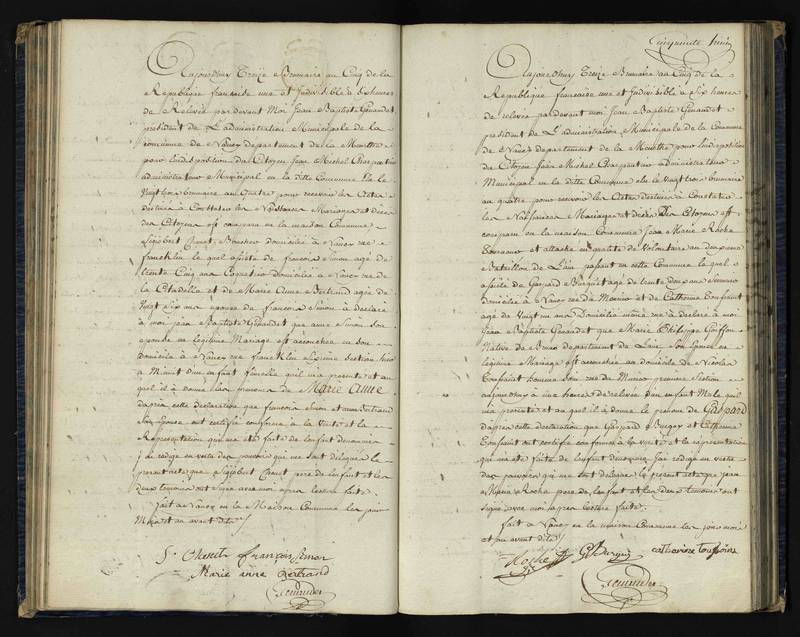 Aujourdhuy Treize Brumaire au Cinq de la
Republique francaise une et Indivisible à six heures
de Relevée pardevant Moi Jean Baptiste Genaudet
president de L'administration Municipale de la
commune de Nancy departement de la Meurthe
pour l'indisposition du Citoyen Jean Michel Charpentier
administrateur Municipal en la ditte Commune Elu le
Vingt trois brumaire au quatre pour recevoir les Actes
destinés à Constater les Naissances Mariages et décès
des Citoyens est comparu en la maison Commune
Sigisbert Bouchere domicilié à Nancy rue
francklin le quel assisté de francois Simon agé de
trente Cinq ans Domicilié à Nancy rue de
la Citadelle et de Marie Anne Bertrand agée de
Vingt Six ans épouse de francois Simon à déclaré
à moi jean Baptiste Genaudet que anne Simon son
epouse en légitime Mariage est accouchée en son
Domicile à Nancy rue francklin section
à Minuit d'un enfant femelle quil m'a présenté et au
quel il à donné les prenoms de Marie Anne
dapres cette declaration que francois Simon et anne Bertrand
Son Epouse ont certifié conforme à la Verité et la
Representation qui ma été faite de l'enfant denommé
j'ai redigé en vertu des pouvoirs qui me sont delegués le
present acte que Sigisbert pere de l'enfant et les
deux temoins ont signé avec moi apres lecture faite.
fait à Nancy en la Maison Commune les jour
Mois et an avant dits
francois Simon
Marie anne Bertrand
Cinquante huit
Aujourdhuy Treize Brumaire au Cinq de la
Republique francaise une et Indivisible à Six heures
de relevée pardevant moi Jean Baptiste Genaudet
president de L'administration Municipale de la Commune
de Nancy departement de la Meurthe pour l'indisposition
du Citoyen Jean Michel Charpentier administrateur
Municipal en la ditte Commune elu le Vingt trois brumaire
au quatre pour recevoir les Actes destinés à Constater
les Naissances Mariages et décès des Citoyens est
comparu en la maison Commune Jean Marie Roche
et attaché en qualité de Volontaire au deuxieme
Bataillon de L'ain passant en cette Commune le quel
assisté de Gaspard Burquet agé de trente deux ans
domicilié à Nancy rue du Manoir et de Catherine Toussaint
agé de vingt un ans Domicilié même rue à declaré à moi
Jean Baptiste Genaudet que Marie Philippe
Native de departement de L'ain Son Epouse en
legitime Mariage est accouchée au domicile de Nicolas
Toussaint rue du Manoir premiere Section
aujourdhuy à une heure de relevée d'un enfant Male quil
m'a présenté et au quel il à donné le prenom de Gaspard
dapres cette declaration que Gaspard Burquet et Catherine
Toussaint ont certifié conforme à la verité et la représentation
qui ma été faite de l'enfant denommé j'ai redigé en vertu
des pouvoirs qui me sont delegués le present acte que jean
Marie Roche pere de l'enfant et les deux temoins ont
signé avec moi apres lecture faite.
fait à Nancy en la maison Commune les jour mois
et an avant dits
Roche
catherine toussaint